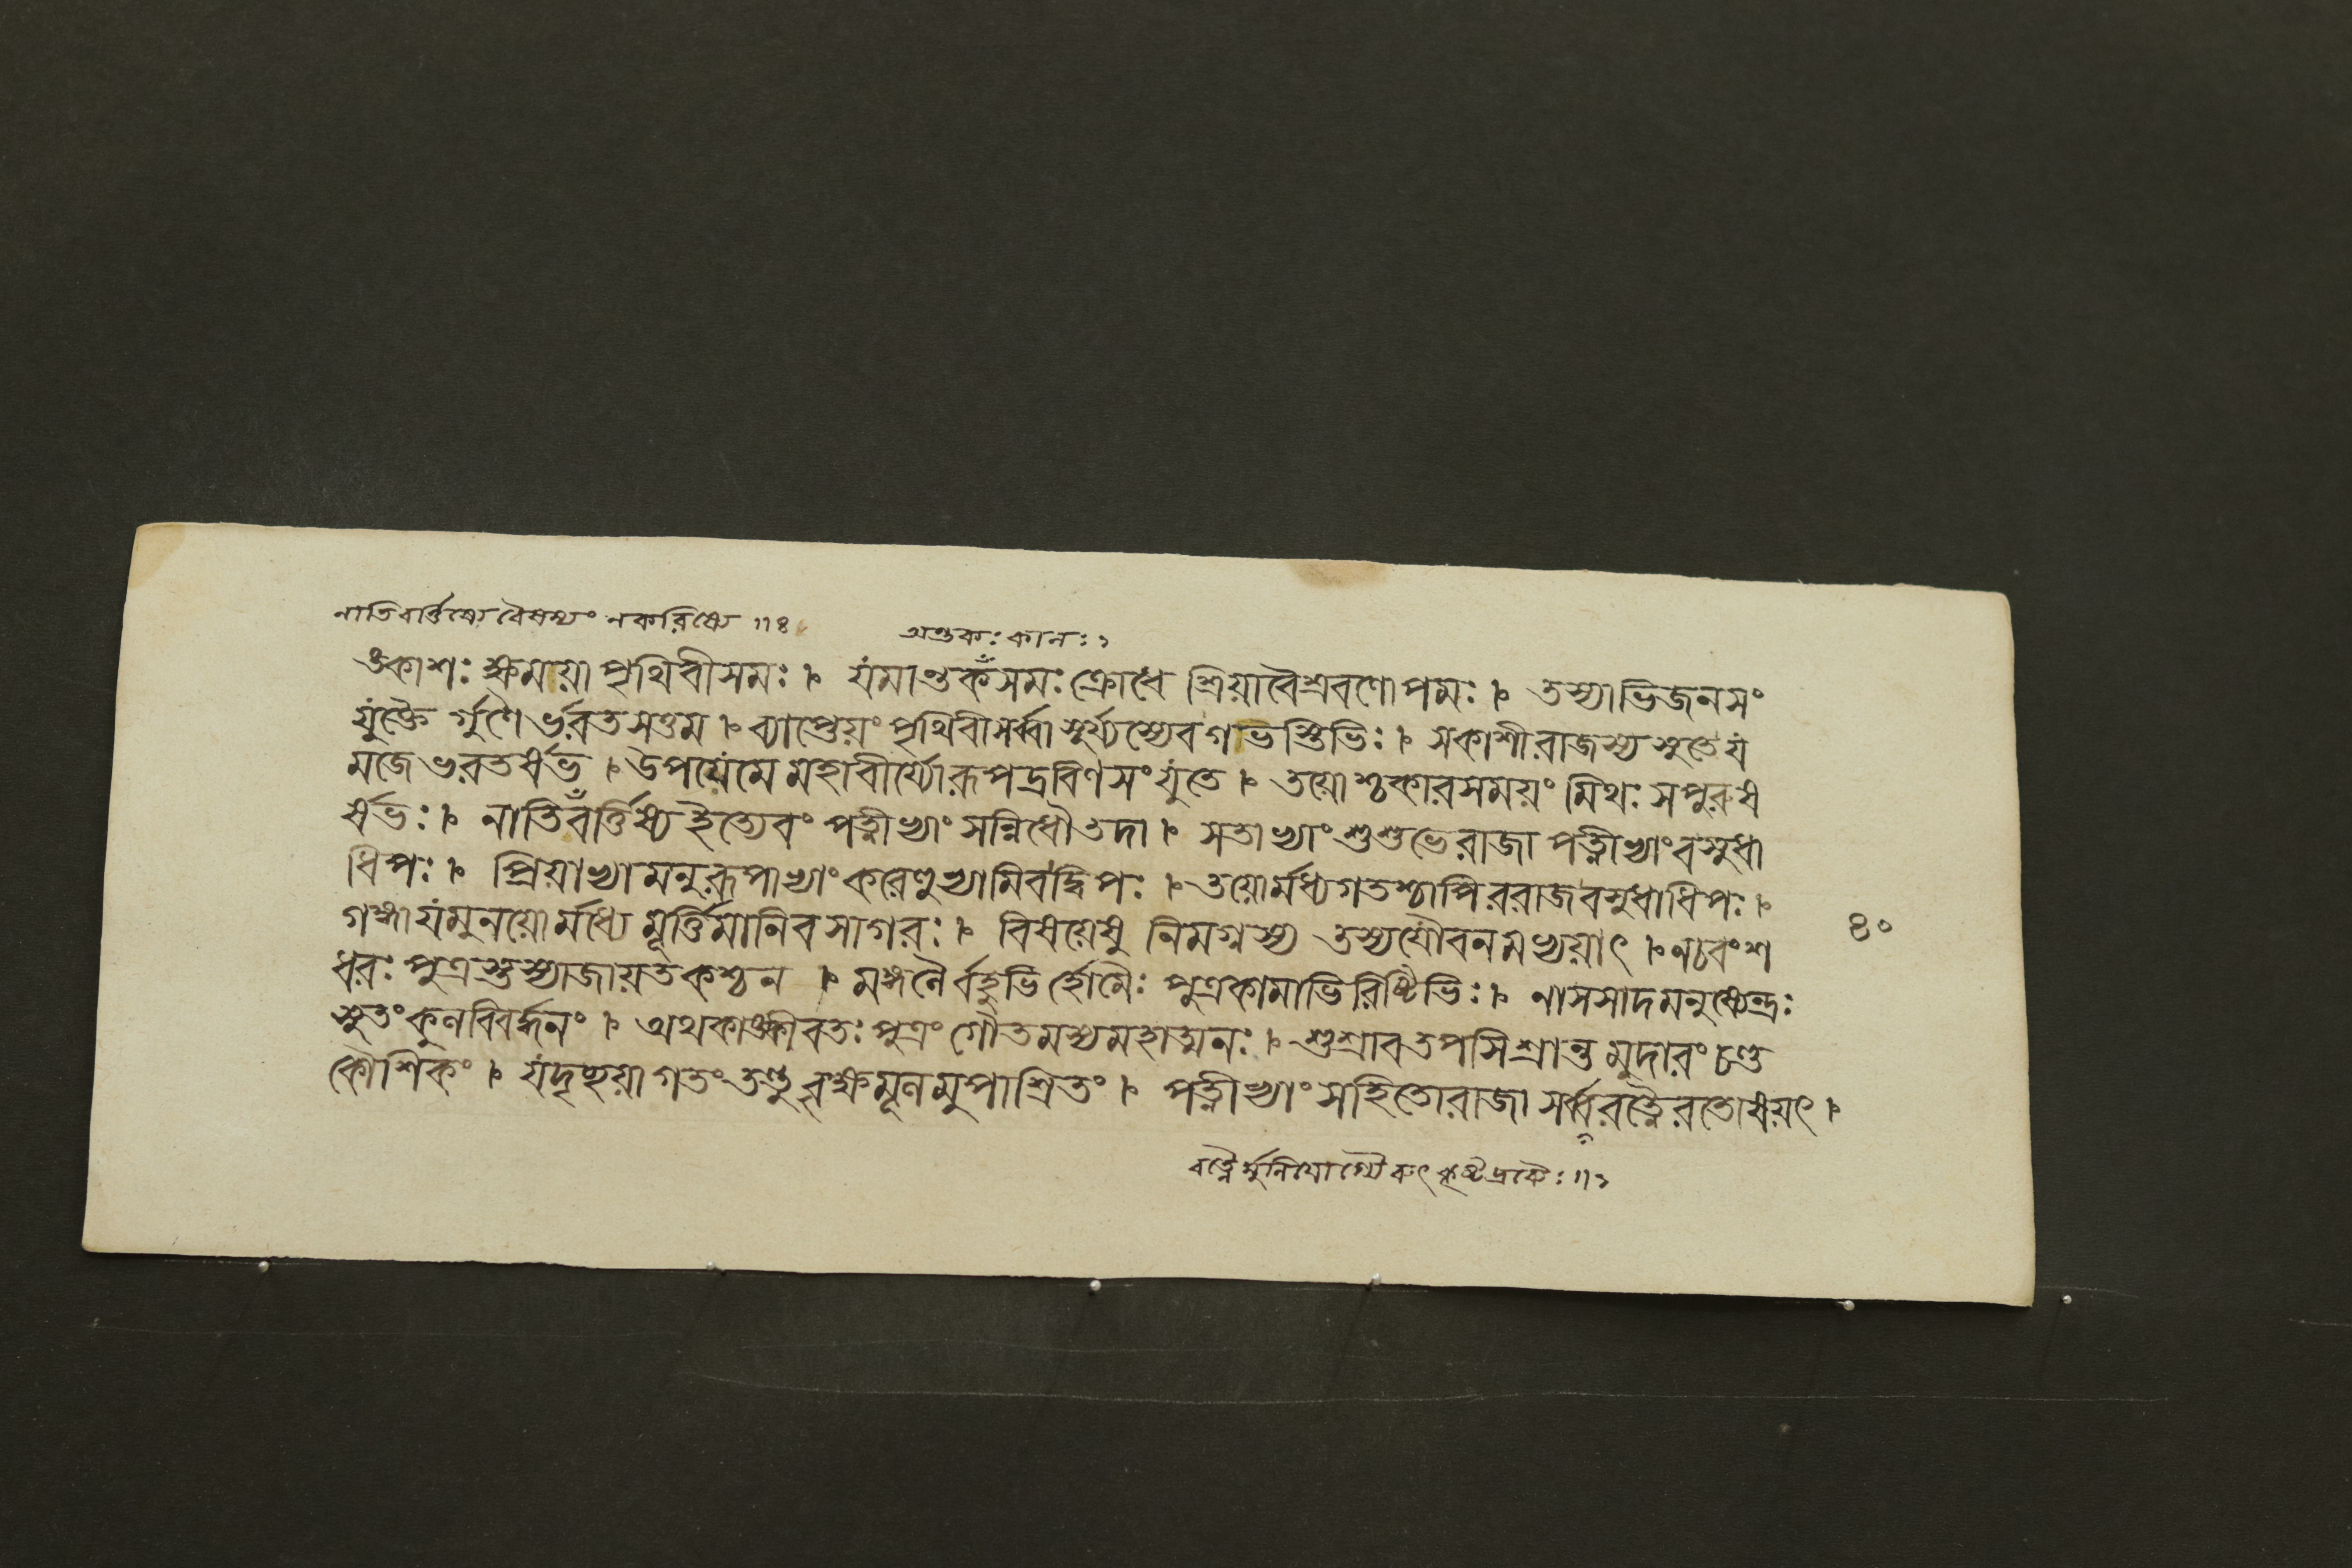 নাতিবর্ত্তিষ্যে বৈষম্যং ন করিষ্যে ॥ ৪
অন্তকঃ কালঃ ১
ঙ্কাশঃ ক্ষময়া পৃথিবীসমঃ । যমান্তকসমঃ ক্রোধে শ্রিয়া বৈশ্রবণোপমঃ । তস্যাভিজনসং
যুক্তৈ র্গুণৈ র্ভরতসত্তম । ব্যাপ্তেয়ং পৃথিবী সর্ব্বা সূর্য্যস্যেব গভস্তিভিঃ । স কাশীরাজস্য সুতে য
মজে ভরতর্ষভ । উপয়েমে মহাবীর্য্যো রূপদ্রবিণসংযুতে । তয়োশ্চকার সময়ং মিথঃ স পুরুষ
র্ষভঃ । নাতিবর্ত্তিষ্য ইত্যেবং পত্নীভ্যাং সন্নিধৌ তদা । স তাভ্যাং শুশুভে রাজা পত্নীভ্যাং বসুধা
ধিপঃ । প্রিয়াভ্যামনুরূপাভ্যাং করেণুভ্যামিব দ্বিপঃ । তয়োর্মধ্যগতশ্চাপি ররাজ বসুধাধিপঃ ।
গঙ্গাযমুনয়োর্মধ্যে মূর্ত্তিমানিব সাগরঃ । বিষয়েষু নিমগ্নস্য তস্য যৌবনমভ্যয়াৎ । ন চ বংশ
৪০
ধরঃ পুত্রস্তস্যাজায়ত কশ্চন । মঙ্গলৈর্বহুভির্হোমৈঃ পুত্রকামাভিরিষ্টিভিঃ । নাসসাদ মনুষ্যেন্দ্রঃ
সুতং কুলবিবর্দ্ধনং । অথ কাক্ষীবতঃ পুত্রং গৌতমস্য মহাত্মনঃ । শুশ্রাব তপসি শ্রান্তমুদারং চণ্ড
কৌশিকং । যদৃচ্ছয়াগতং তন্তু বৃক্ষমূলমুপাশ্রিতং । পত্নীভ্যাং সহিতো রাজা সর্ব্বরত্নৈরতোষয়ৎ ।
রত্নৈর্মুনিযোগ্যৈরুৎকৃষ্টদ্রব্যৈঃ ॥ ১